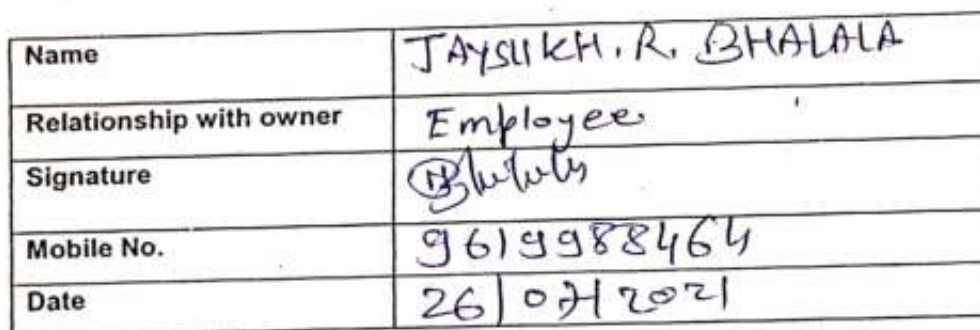 Name JAYSUKH. R. BHALALA
Relationship with owner Employee
Signature
Mobile No. 9619988464
Date 26/07/2021